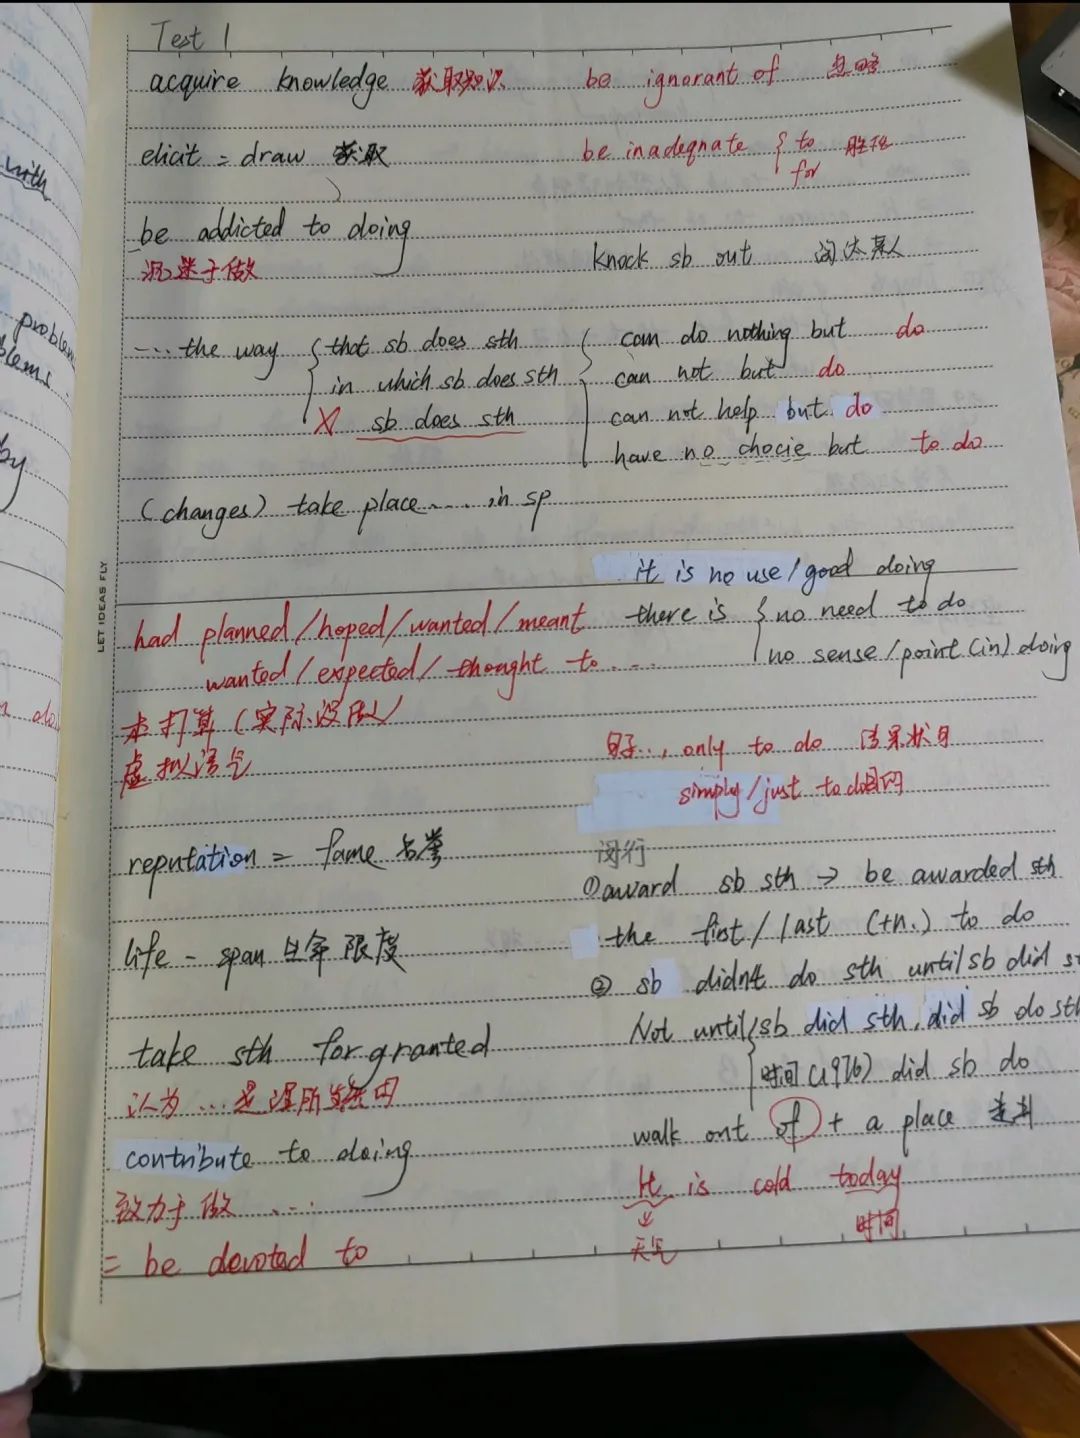 Test 1
acquire knowledge 获取知识
elicit = draw 获取
be addicted to doing
沉迷于做
... the way { that sb does sth
in which sb does sth
X sb does sth
(changes) take place ..... in sp
had planned/hoped/wanted/meant
wanted/expected/thought to ....
本打算(实际没做)
虚拟语气
reputation = fame 名誉
life - span 生命限度
take sth for granted
认为...是理所当然的
contribute to doing
致力于做 ...
= be devoted to
be ignorant of 忽略
be inadeqnate { to 胜任
for
knock sb out 淘汰某人
can do nothing but do
can not but do
can not help but do
have no chocie but to do
it is no use/good doing
there is { no need to do
no sense/point (in) doing
句子.., only to do 结果状
simply/just to do目的
闵行
①award sb sth → be awarded sth
the first/last (+n.) to do
② sb didn't do sth until sb did
Not until { sb did sth, did sb do sth
时间(1976) did sb do
walk out of + a place 走到
It is cold today
天气
时间
LET IDEAS FLY
with
problem
blems.
by
do